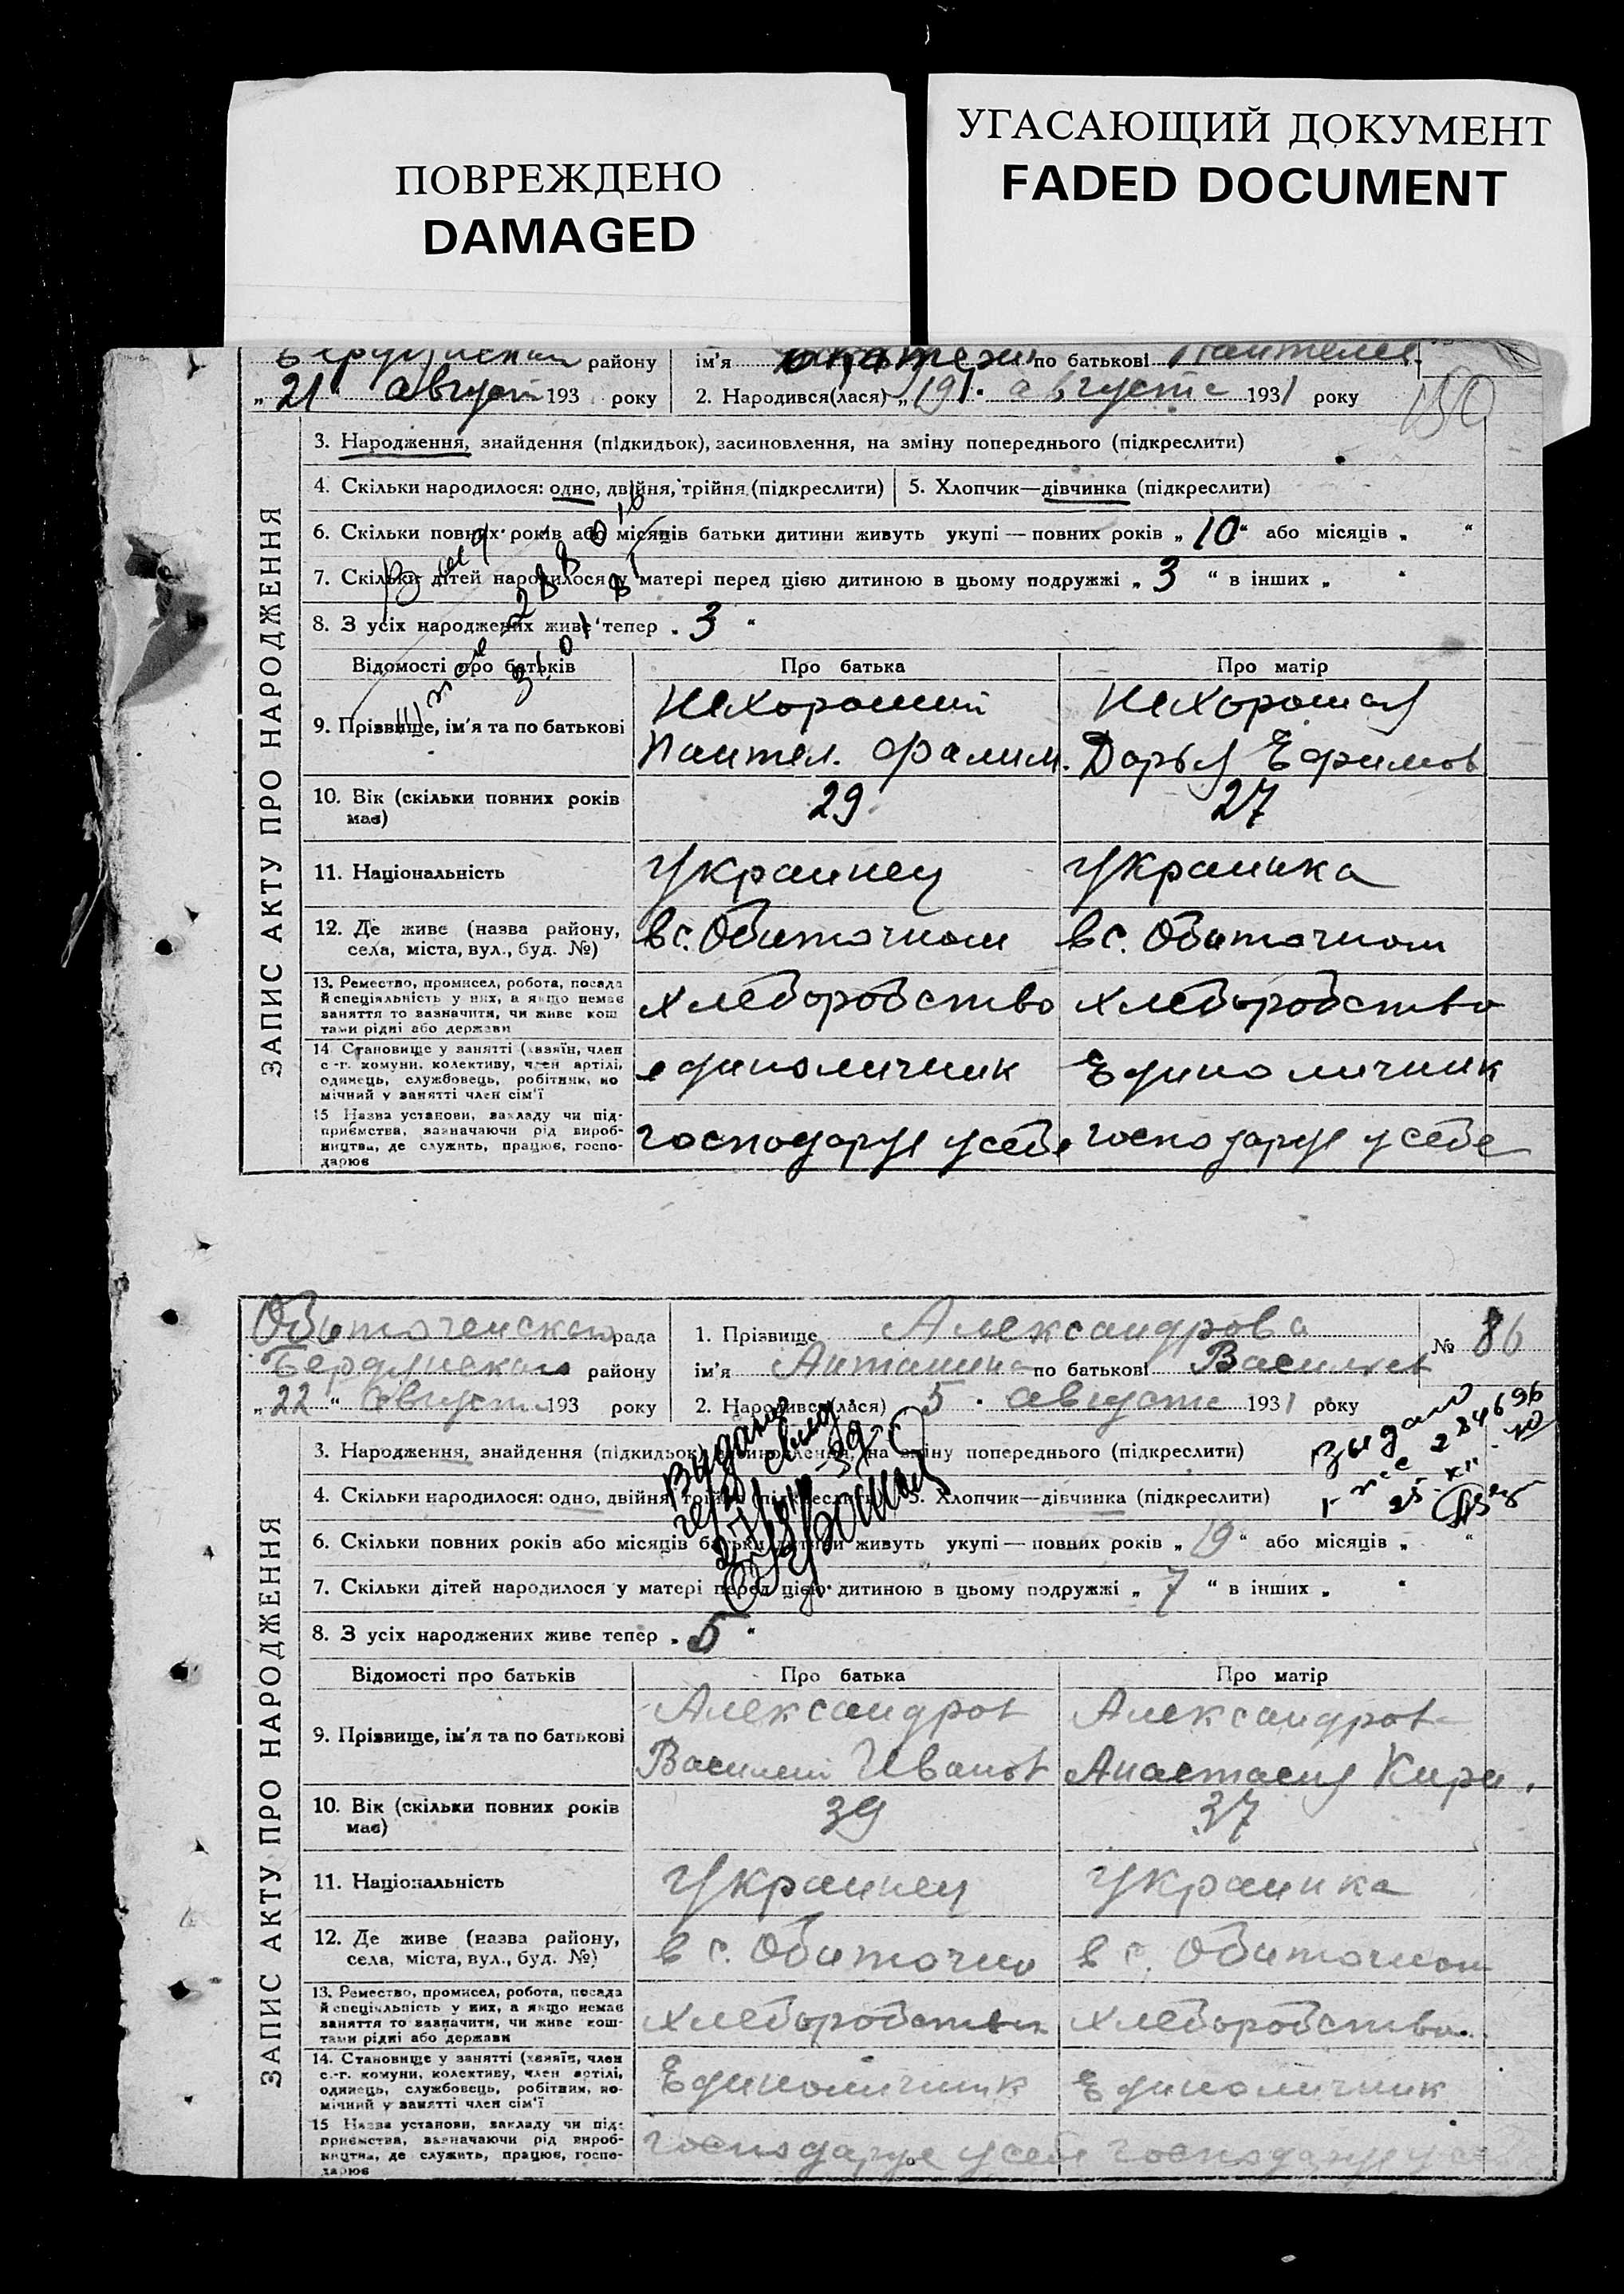 ПОВРЕЖДЕНО
DAMAGED
УГАСАЮЩИЙ ДОКУМЕНТ
FADED DOCUMENT
району ім'я по батькові
„21" август 193 року 2. Народився(лася) „19". августа 1931 року
150
ЗАПИС АКТУ ПРО НАРОДЖЕННЯ
3. Народження, знайдення (підкидьок), засиновлення, на зміну попереднього (підкреслити)
4. Скільки народилося: одно, двійня, трійня (підкреслити) 5. Хлопчик—дівчинка (підкреслити)
6. Скільки повних років або місяців батьки дитини живуть укупі — повних років „10" або місяців „ "
7. Скільки дітей народилося у матері перед цією дитиною в цьому подружжі „3" в інших „ "
8. З усіх народжених живе тепер „3"
Відомості про батьків Про батька Про матір
9. Прізвище, ім'я та по батькові
Нехороший Нехорошая
Пантел. Фалим. Дарья Ефимов
10. Вік (скільки повних років має) 29 27
11. Національність Украинец Украинка
12. Де живе (назва району, села, міста, вул., буд. №) в с. Обиточном в с. Обиточном
13. Ремество, промисел, робота, посада й спеціяльність у них, а якщо немає заняття то зазначити, чи живе коштами рідні або держави
хлеборобство хлеборобство
14. Становище у занятті (хазяїн, член с.-г. комуни, колективу, член артілі, одинець, службовець, робітник, помічний у занятті член сім'ї
единоличник Единоличник
15. Назва установи, закладу чи підприємства, зазначаючи рід виробництва, де служить, працює, господарює
господарує у себе господарує у себе
Обиточенская рада 1. Прізвище Александрова № 86
Бердянского району ім'я Антанина по батькові Василиев
„22" августа 193 року 2. Народився(лася) 5. августа 1931 року
Видано
284696
ЗАПИС АКТУ ПРО НАРОДЖЕННЯ
3. Народження, знайдення (підкидьок), засиновлення, на зміну попереднього (підкреслити)
4. Скільки народилося: одно, двійня, трійня (підкреслити) 5. Хлопчик—дівчинка (підкреслити)
6. Скільки повних років або місяців батьки дитини живуть укупі — повних років „19" або місяців „ "
7. Скільки дітей народилося у матері перед цією дитиною в цьому подружжі „7" в інших „ "
8. З усіх народжених живе тепер „5"
Відомості про батьків Про батька Про матір
9. Прізвище, ім'я та по батькові
Александров Александров
Василий Иванов Анастасия Кири.
10. Вік (скільки повних років має) 39 37
11. Національність Украинец Украинка
12. Де живе (назва району, села, міста, вул., буд. №) в с. Обиточно в с. Обиточном
13. Ремество, промисел, робота, посада й спеціяльність у них, а якщо немає заняття то зазначити, чи живе коштами рідні або держави
хлеборобство хлеборобство
14. Становище у занятті (хазяїн, член с.-г. комуни, колективу, член артілі, одинець, службовець, робітник, помічний у занятті член сім'ї
Единоличник Единоличник
15. Назва установи, закладу чи підприємства, зазначаючи рід виробництва, де служить, працює, господарює
господарує у себе господарує у себе